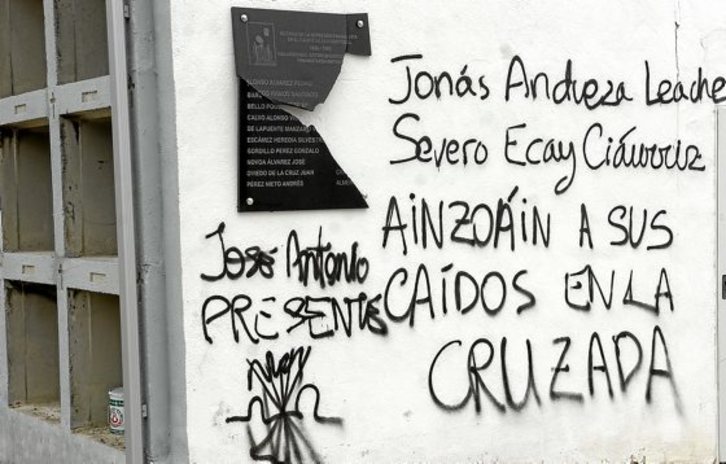 ALONSO ALVAREZ PEDRO
CALVO ALONSO
DE LAPUENTE MANZANO
ESCAMEZ HEREDIA SILVESTRE
GORDILLO PEREZ GONZALO
NOVOA ÁLVAREZ JOSÉ
OVIEDO DE LA CRUZ JUAN
PÉREZ NIETO ANDRÉS
Jonás Andueza Leache
Severo Ecay Ciáurriz
AINZOÁIN A SUS
CAÍDOS EN LA
CRUZADA
José Antonio
PRESENTE